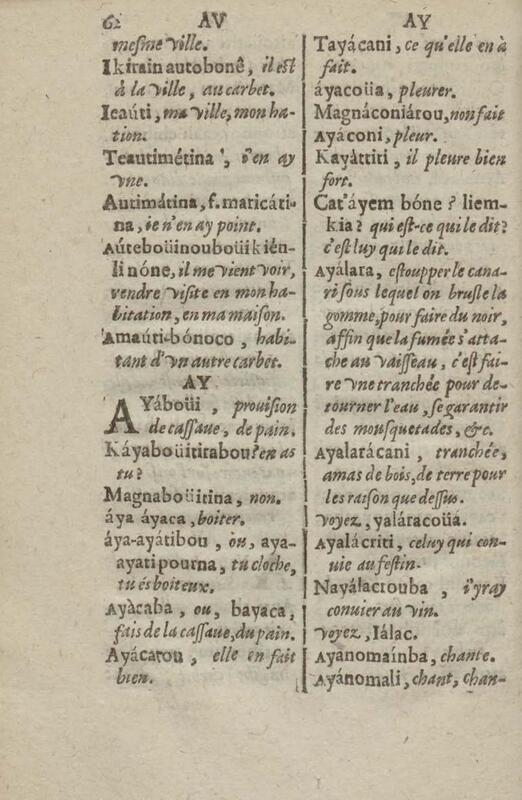 62 AV
mesme ville.
Ikirain autobonê, il est
à la ville, au carbet.
Icaúti, ma ville, mon ha-
tion.
Teautimétina', i'en ay
vne.
Autimátina, f. maricáti-
na, ie n'en ay point.
Aúteboüinouboüikién-
li nóne, il me vient voir,
rendre visite en mon ha-
bitation, en ma maison.
Amaúti-bónoco, habi-
tant d'vn autre carbet.
AY
AYáboüi, prouision
de cassaue, de pain.
Káyaboüitirabou? en as
tu?
Magnaboüitina, non.
áya áyaca, boiter.
áya-ayátibou, ou, aya-
ayatipourna, tu cloche,
tu és boiteux.
Ayàcaba, ou, bayaca,
fais de la cassaue, du pain.
Ayácarou, elle en fait
bien.
AY
Tayácani, ce qu'elle en à
fait.
áyacoüa, pleurer.
Magnáconiárou, non fait
Ayáconi, pleur.
Kayàttiti, il pleure bien
fort.
Cat'áyem bóne? liem-
kia? qui est-ce qui le dit?
c'est luy qui le dit.
Ayálara, estoupper le cana-
ri sous lequel on brusle la
gomme, pour faire du noir,
affin que la fumée s'atta-
che au vaisseau, c'est fai-
re vne tranchée pour de-
tourner l'eau, se garantir
des mousquetades, &c.
Ayalarácani, tranchée,
amas de bois, de terre pour
les raison que dessus.
voyez, yaláracoüa.
Ayalácriti, celuy qui con-
uie au festin.
Nayálacrouba, i'yray
conuier au vin.
voyez, Iálac.
Ayanomaínba, chante.
Ayánomali, chant, chan-